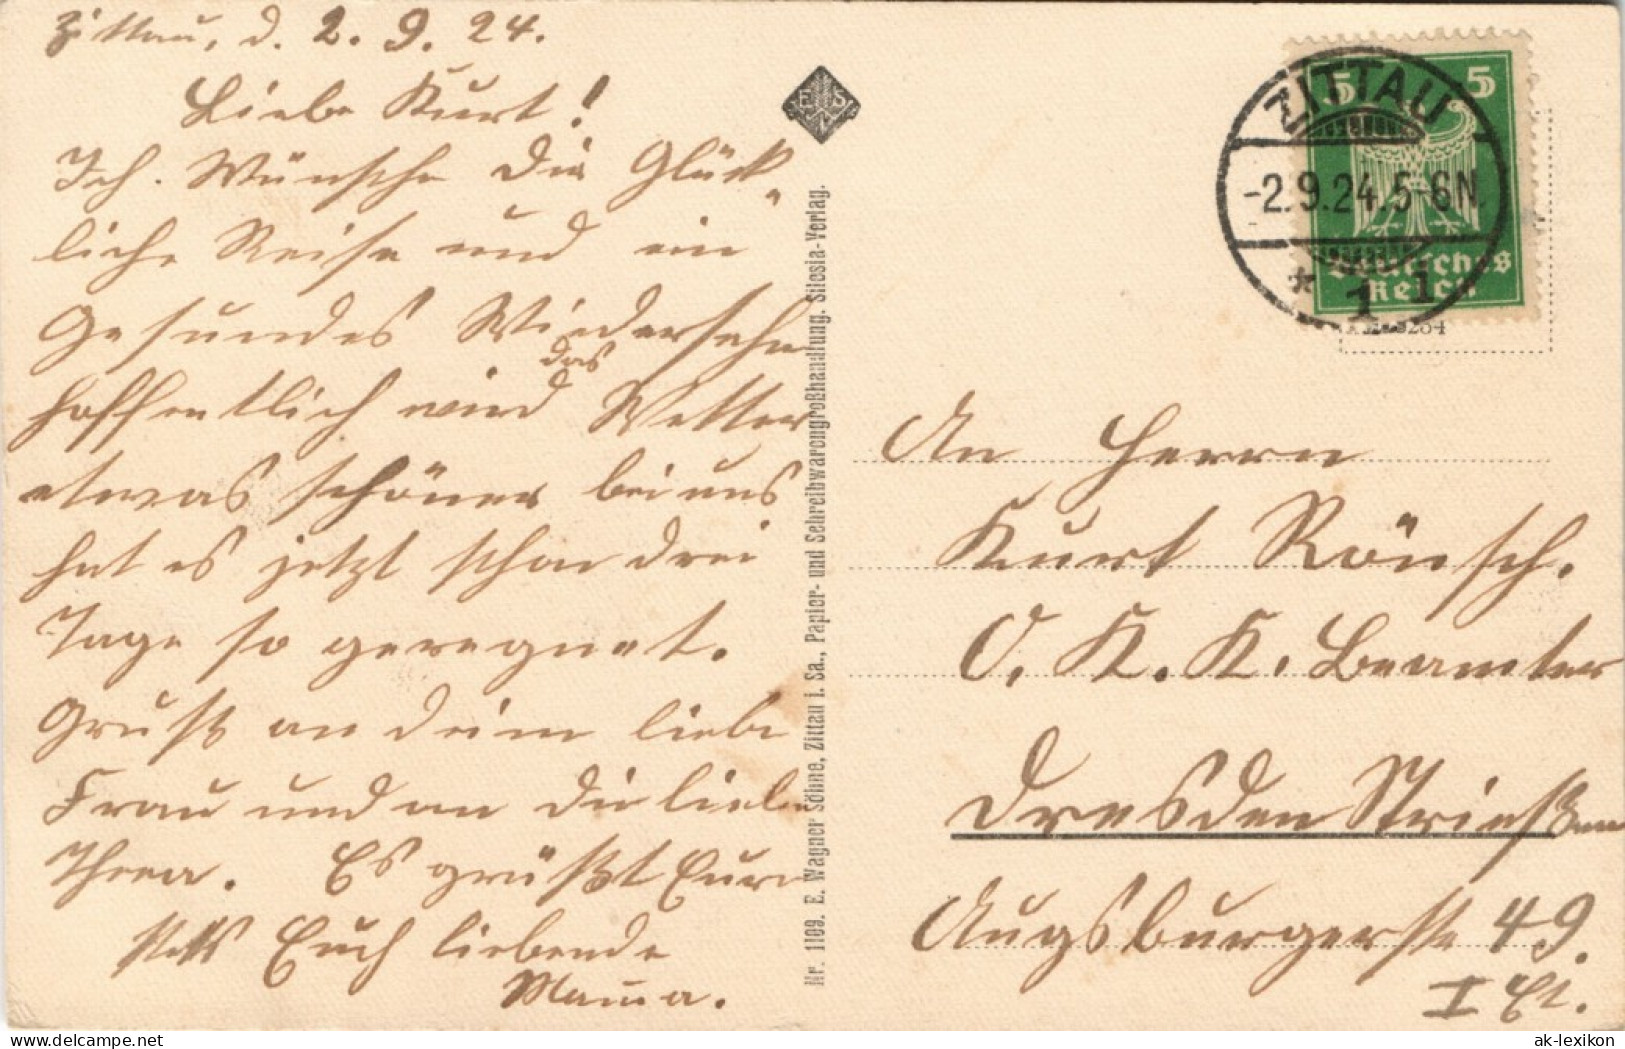 Zittau, d. 2. 9. 24.
Liebe Kurt!
Ich. Wünsche Dir Glück-
liche Reise und ein
Gesundes Wiedersehn
hoffentlich wird das Wetter
etwas schöner bei uns
hat es jetzt schon drei
Tage so geregnet.
Gruß an deine liebe
Frau und an die lieben
Thea. Es grüßt Eure
stets Euch liebende
Mama.
Nr. 1109. E. Wagner Söhne, Zittau i. Sa., Papier- und Schreibwarengroßhandlung. Silesia-Verlag.
E S
ZITTAU
-2.9.24.5-6N.
* 1 i
5 5
Deutsches
Reich
An Herrn
Kurt Rönsch.
O. K. K. Beamter
Dresden Strießen
Augsburgerstr 49.
I Et.
ak-lexikon
delcampe.net